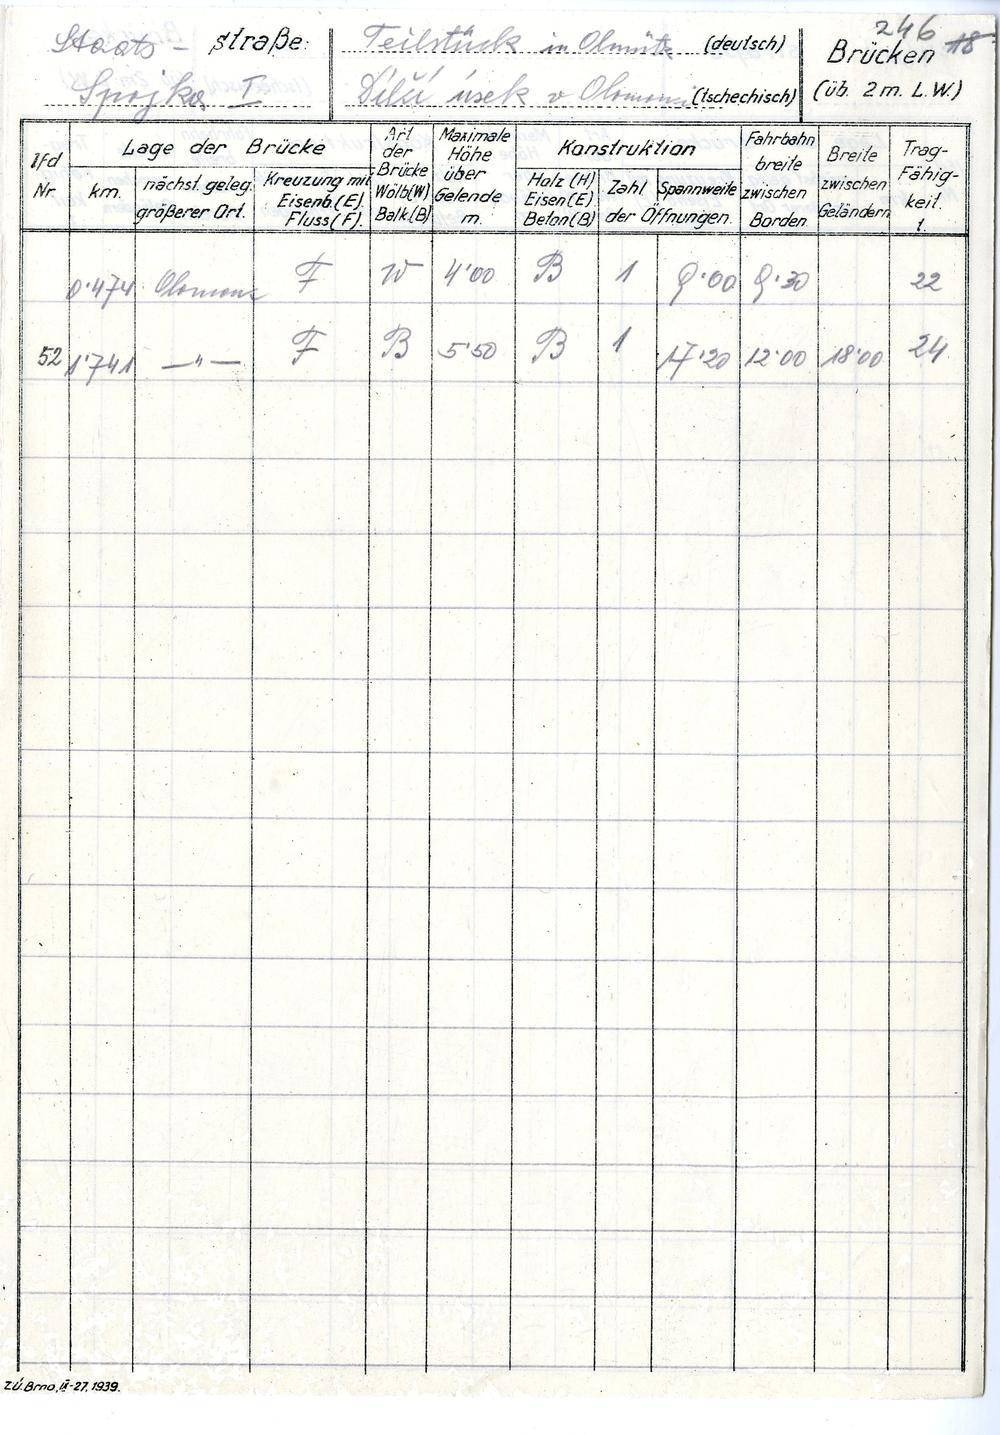 Staats - straße:
Spojka I
Teilstück in Olmütz (deutsch)
Dílčí úsek v Olomouci (tschechisch)
246
18
Brücken
(üb. 2 m. L.W.)
lfd Nr.
Lage der Brücke
km.
nächst. geleg. größerer Ort.
Kreuzung mit Eisenb.(E). Fluss(F).
Art der Brücke Wölb(W) Balk(B)
Maximale Höhe über Gelende m.
Konstruktion
Holz (H) Eisen(E) Beton(B)
Zahl Spannweite
der Öffnungen.
Fahrbahn breite zwischen Borden
Breite zwischen Geländern
Trag- Fähig- keit. t.
0'474 Olomouc F W 4'00 B 1 9'00 9'30 22
52 1'741 —"— F B 5'50 B 1 17'20 12'00 18'00 24
Z.Ú. Brno, II-27, 1939.